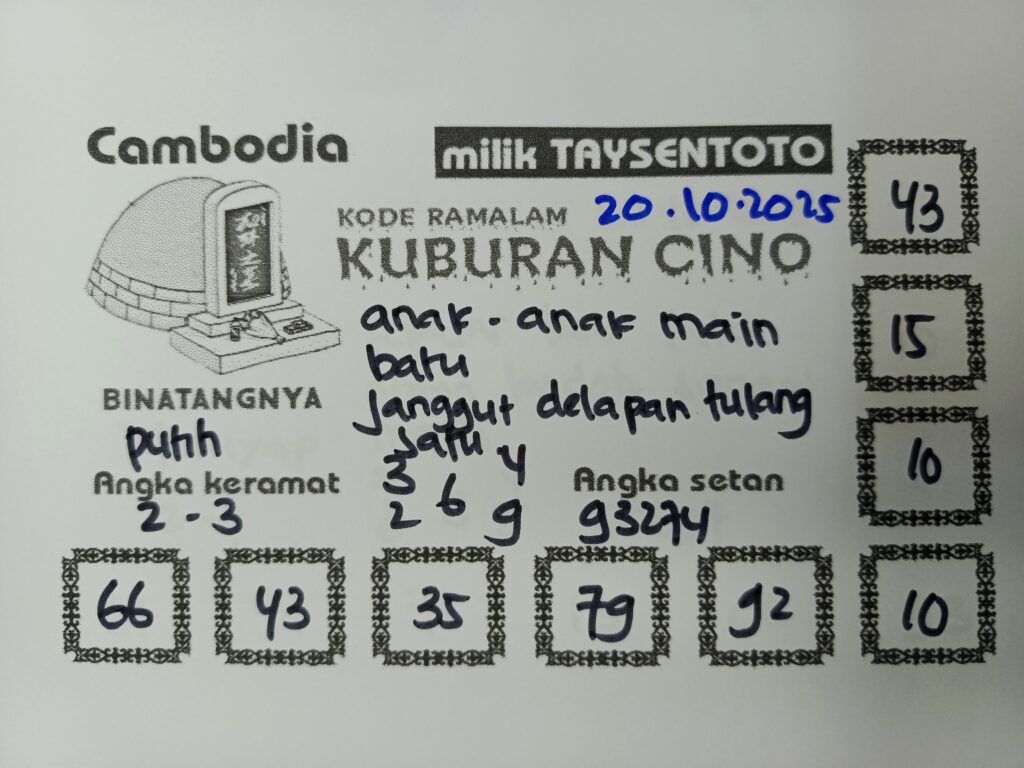 Cambodia
milik TAYSENTOTO
KODE RAMALAM 20.10.2025
KUBURAN CINO
anak - anak main
batu
Janggut delapan tulang
satu
BINATANGNYA
putih
Angka keramat
2 - 3
3 4
2 6 9
Angka setan
93274
43
15
10
66 43 35 79 92 10